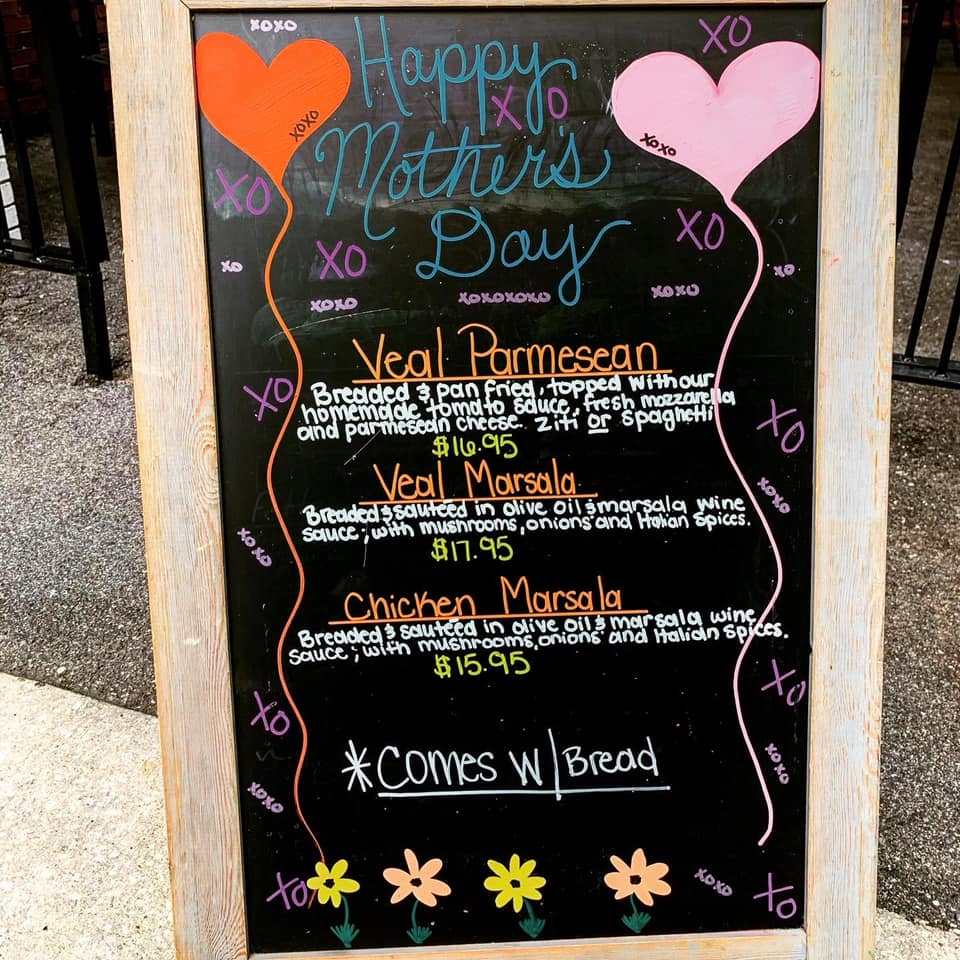 xoxo
XO
Happy
XO
xoxo
Mother's
xoxo
XO
Day
XO
XO
xo
xo
xoxo
xoxoxoxo
xoxo
Veal Parmesean
Breaded & pan fried, topped with our
homemade tomato sauce, fresh mozzarella
and parmesean cheese. Ziti or Spaghetti
$16.95
XO
XO
Veal Marsala
Breaded & sauteed in olive oil & marsala wine
sauce; with mushrooms, onions and Italian spices.
$17.95
xoxo
xoxo
Chicken Marsala
Breaded & sauteed in olive oil & marsala wine
sauce; with mushrooms, onions and Italian spices.
$15.95
XO
XO
*Comes w/ Bread
xoxo
xoxo
XO
xoxo
XO